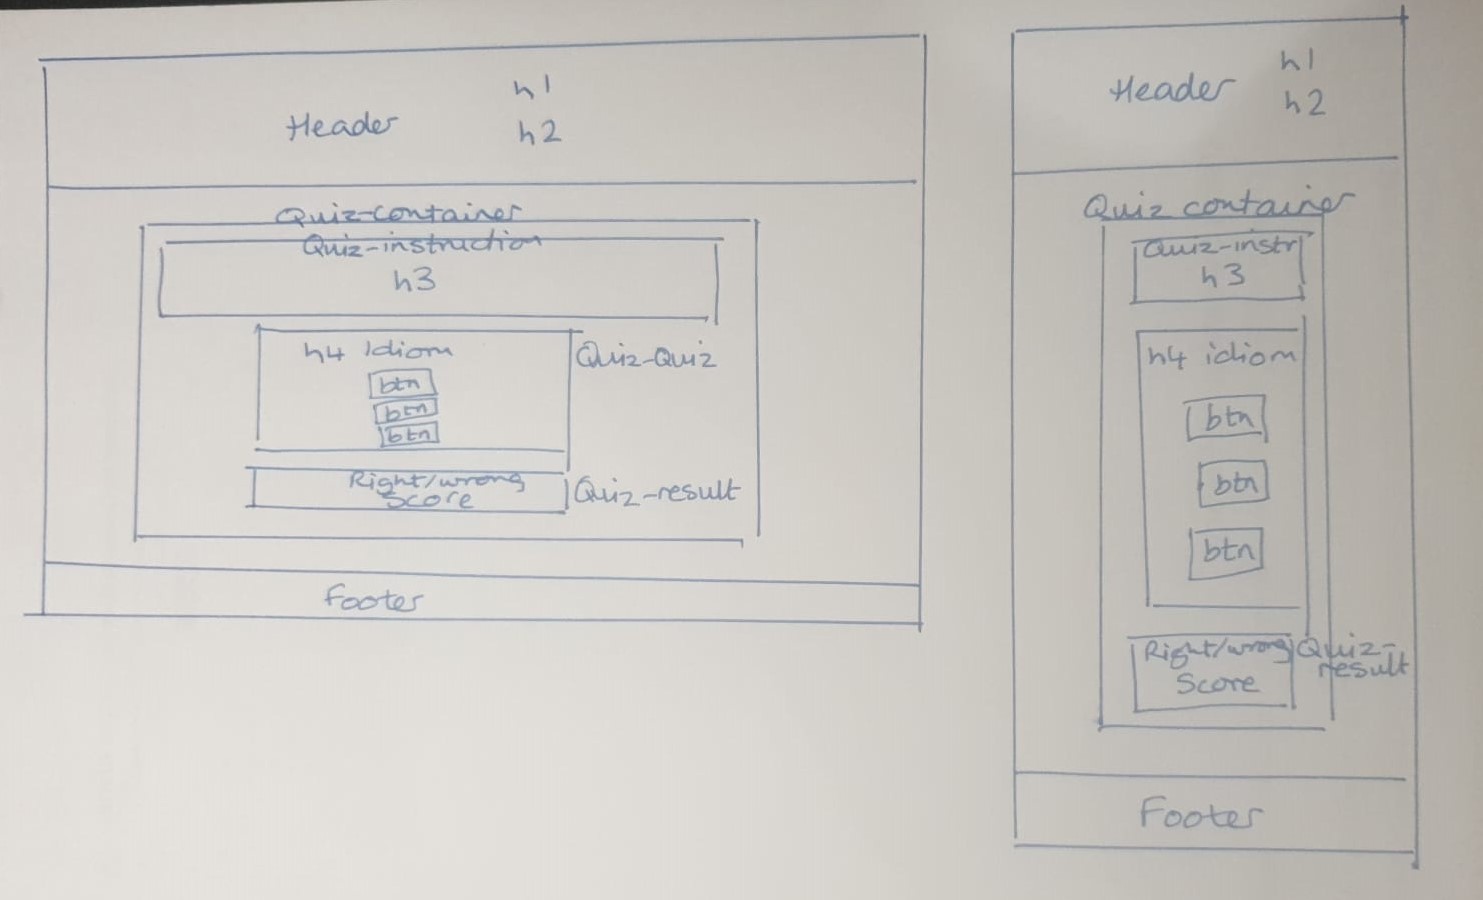 h1
Header
h2
Quiz-container
Quiz-instruction
h3
h4 Idiom
Quiz-Quiz
btn
btn
btn
Right/wrong
Score
Quiz-result
Footer
h1
Header
h2
Quiz container
Quiz-instr
h3
h4 idiom
btn
btn
btn
Right/wrong
Score
Quiz-
result
Footer